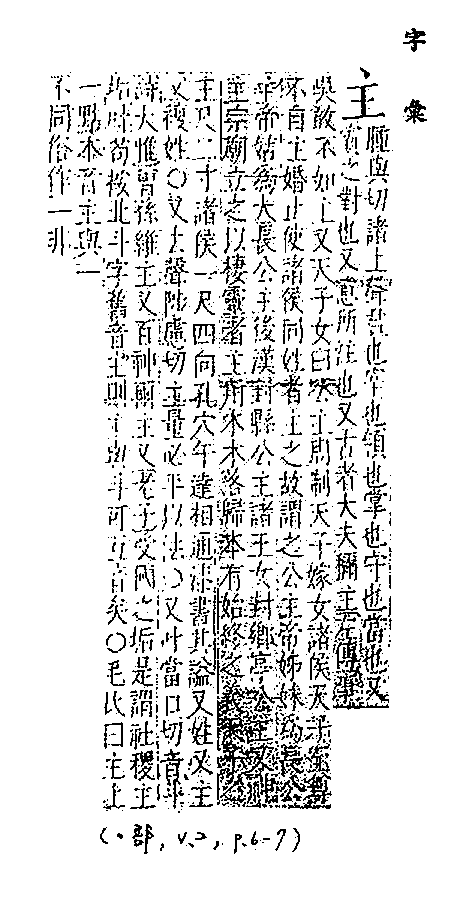 字彙
主
腫與切諸上聲君也宰也領也掌也守也當也又
賓之對也又意所注也又古者大夫稱主左傳
吳敢不如主又天子女曰公主周制天子嫁女諸侯天子至尊
不自主婚止使諸侯同姓者主之故謂之公主帝姊妹為長公
主帝姑為大長公主後漢封縣公主諸王女封鄉亭公主又神
主宗廟立之以棲靈者主用木木落歸本有始終之義天子之
主尺二寸諸侯一尺四向孔穴午達相通漆書其謚又姓又主
又複姓○又去聲陟慮切主量必平以法○又叶當口切音斗
詩大雅曾孫維主又百神爾主又老子受國之垢是謂社稷主
垢叶苟按北斗字舊音主則主與斗可互音矣○毛氏曰主上
一點本音主與一
不同俗作一非
(丶部, v.2, p.6-7)